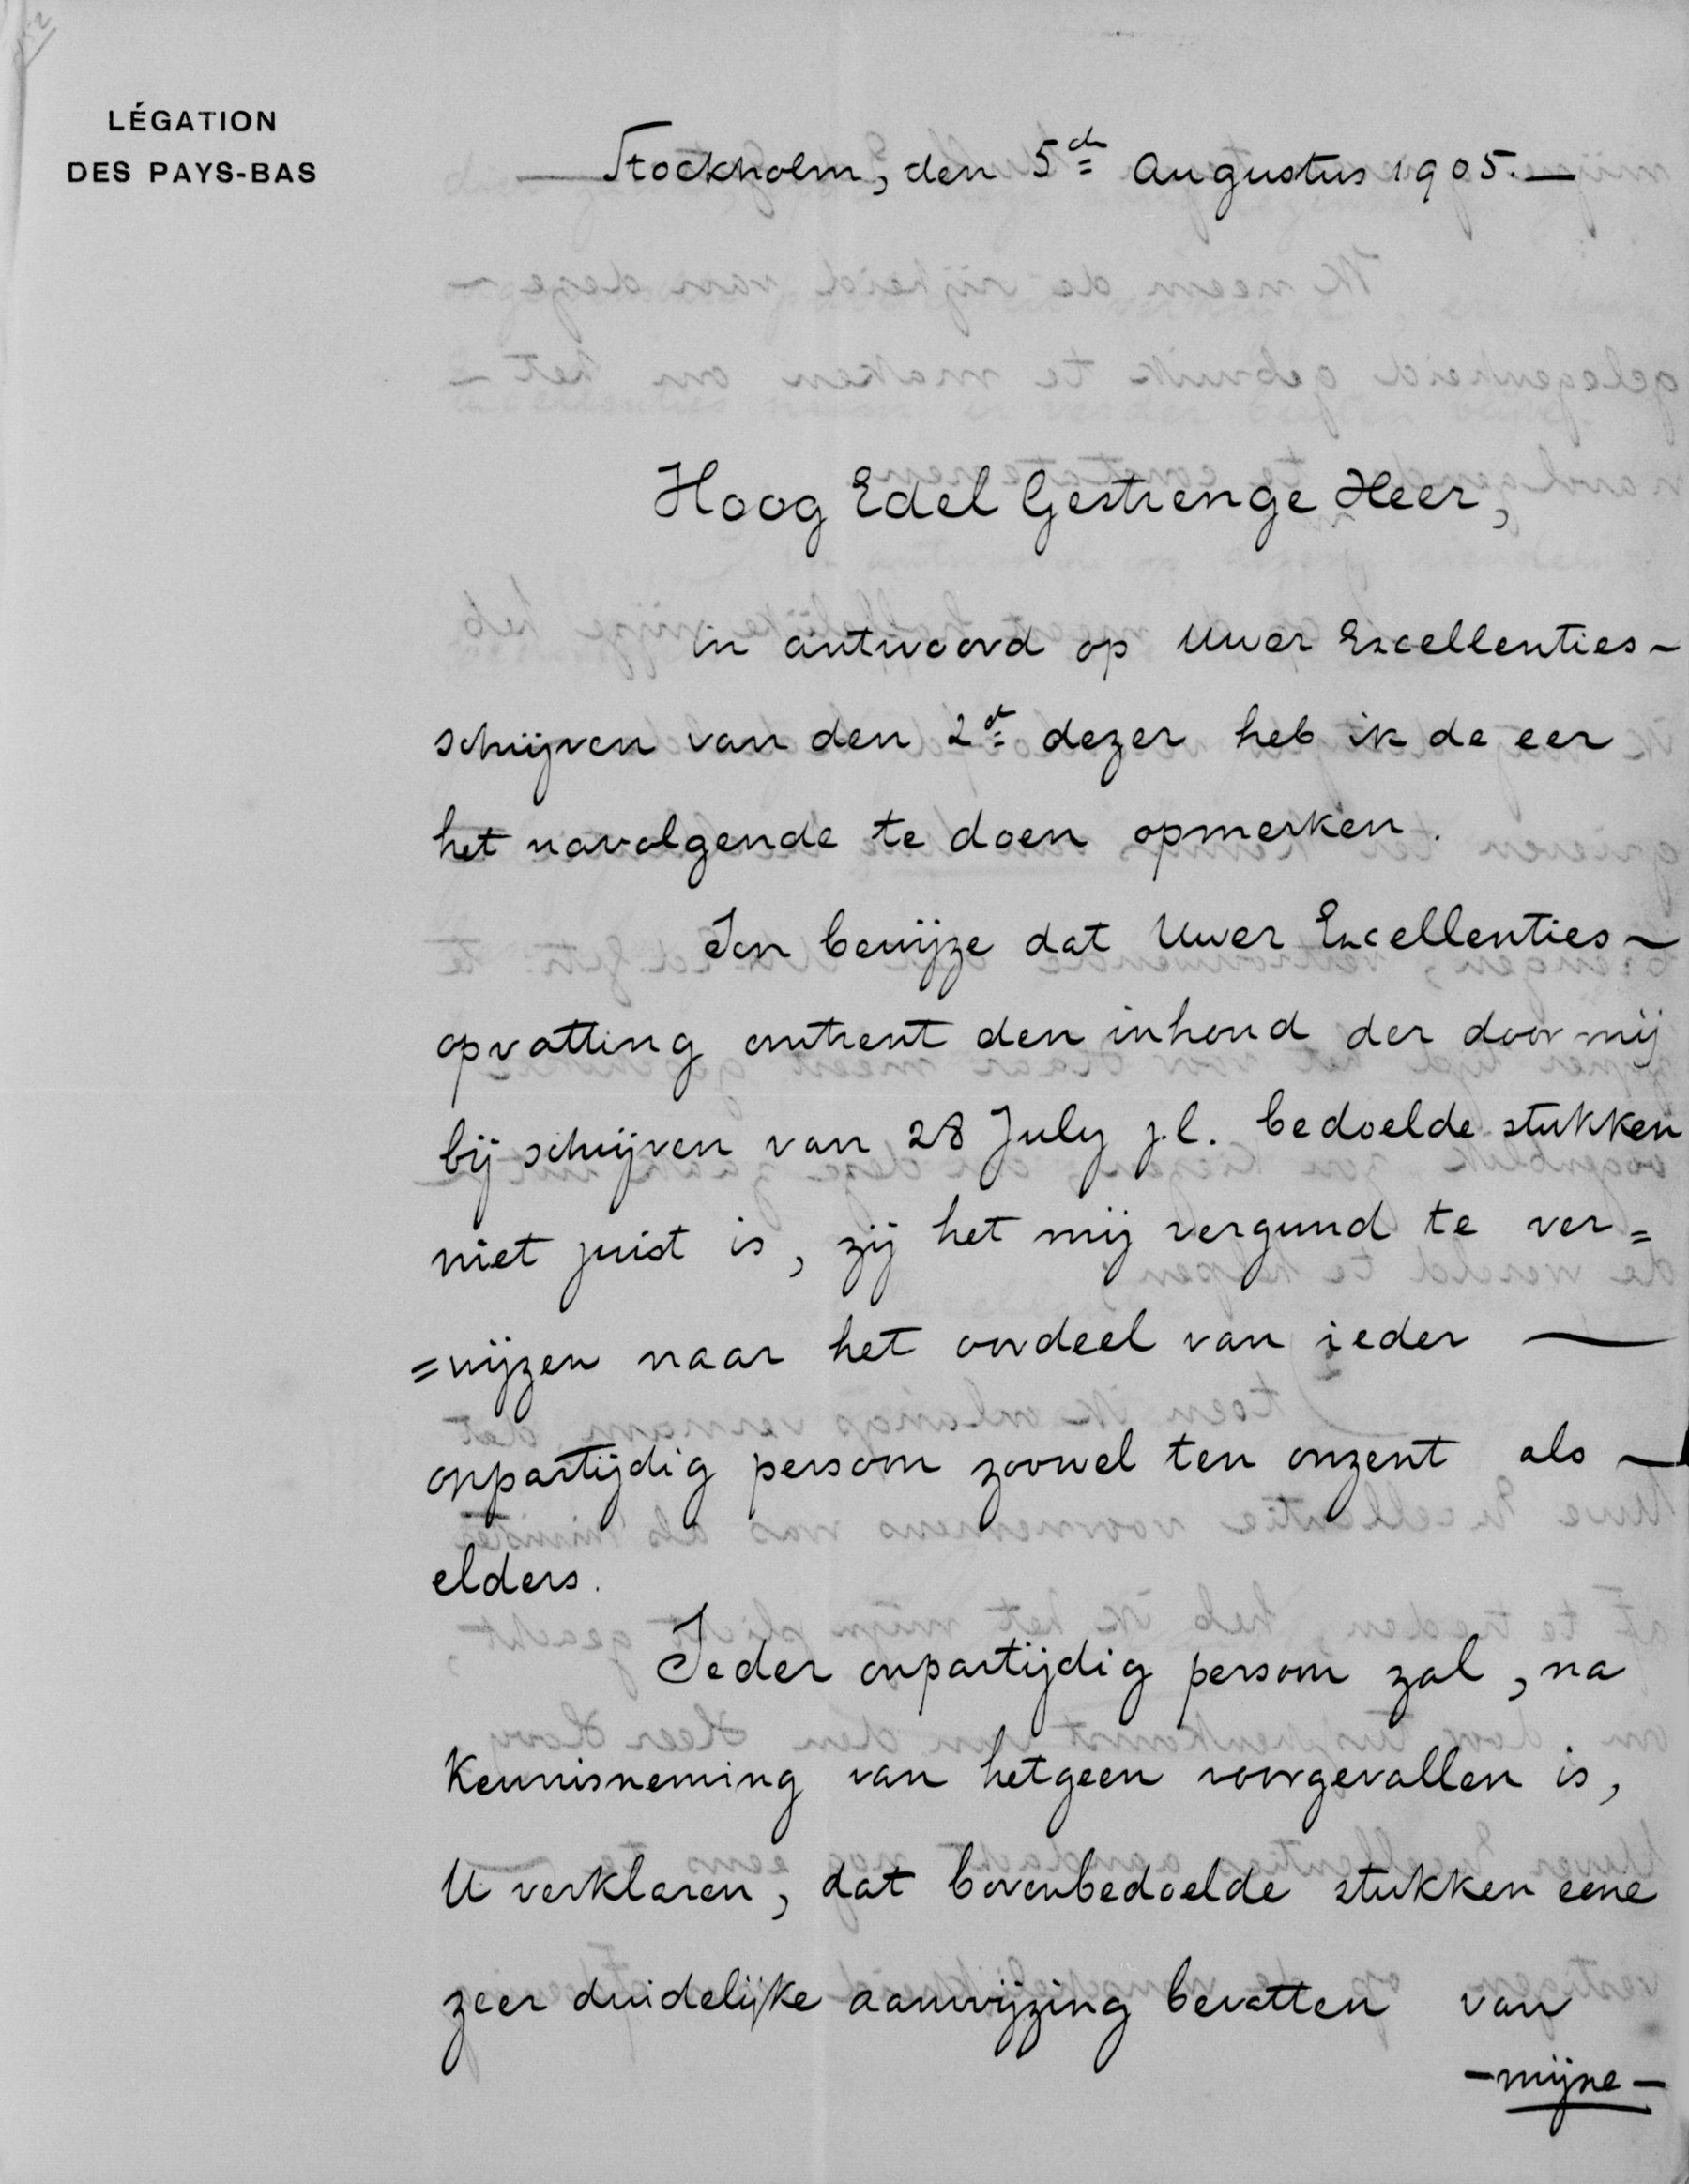 LÉGATION
DES PAYS-BAS
Stockholm, den 5de Augustus 1905.—
Hoog Edel Gestrenge Heer,
in antwoord op Uwer Excellenties-
schrijven van den 2de dezer heb ik de eer
het navolgende te doen opmerken.
Ten bewijze dat Uwer Excellenties-
opvatting omtrent den inhoud der door mij
bij schrijven van 28 July j.l. bedoelde stukken
niet juist is, zij het mij vergund te ver=
=wijzen naar het oordeel van ieder —
onpartijdig persoon zoowel ten onzent als —
elders.
Ieder onpartijdig persoon zal, na
kennisneming van hetgeen voorgevallen is,
U verklaren, dat bovenbedoelde stukken eene
zeer duidelijke aanwijzing bevatten van
-mijne-